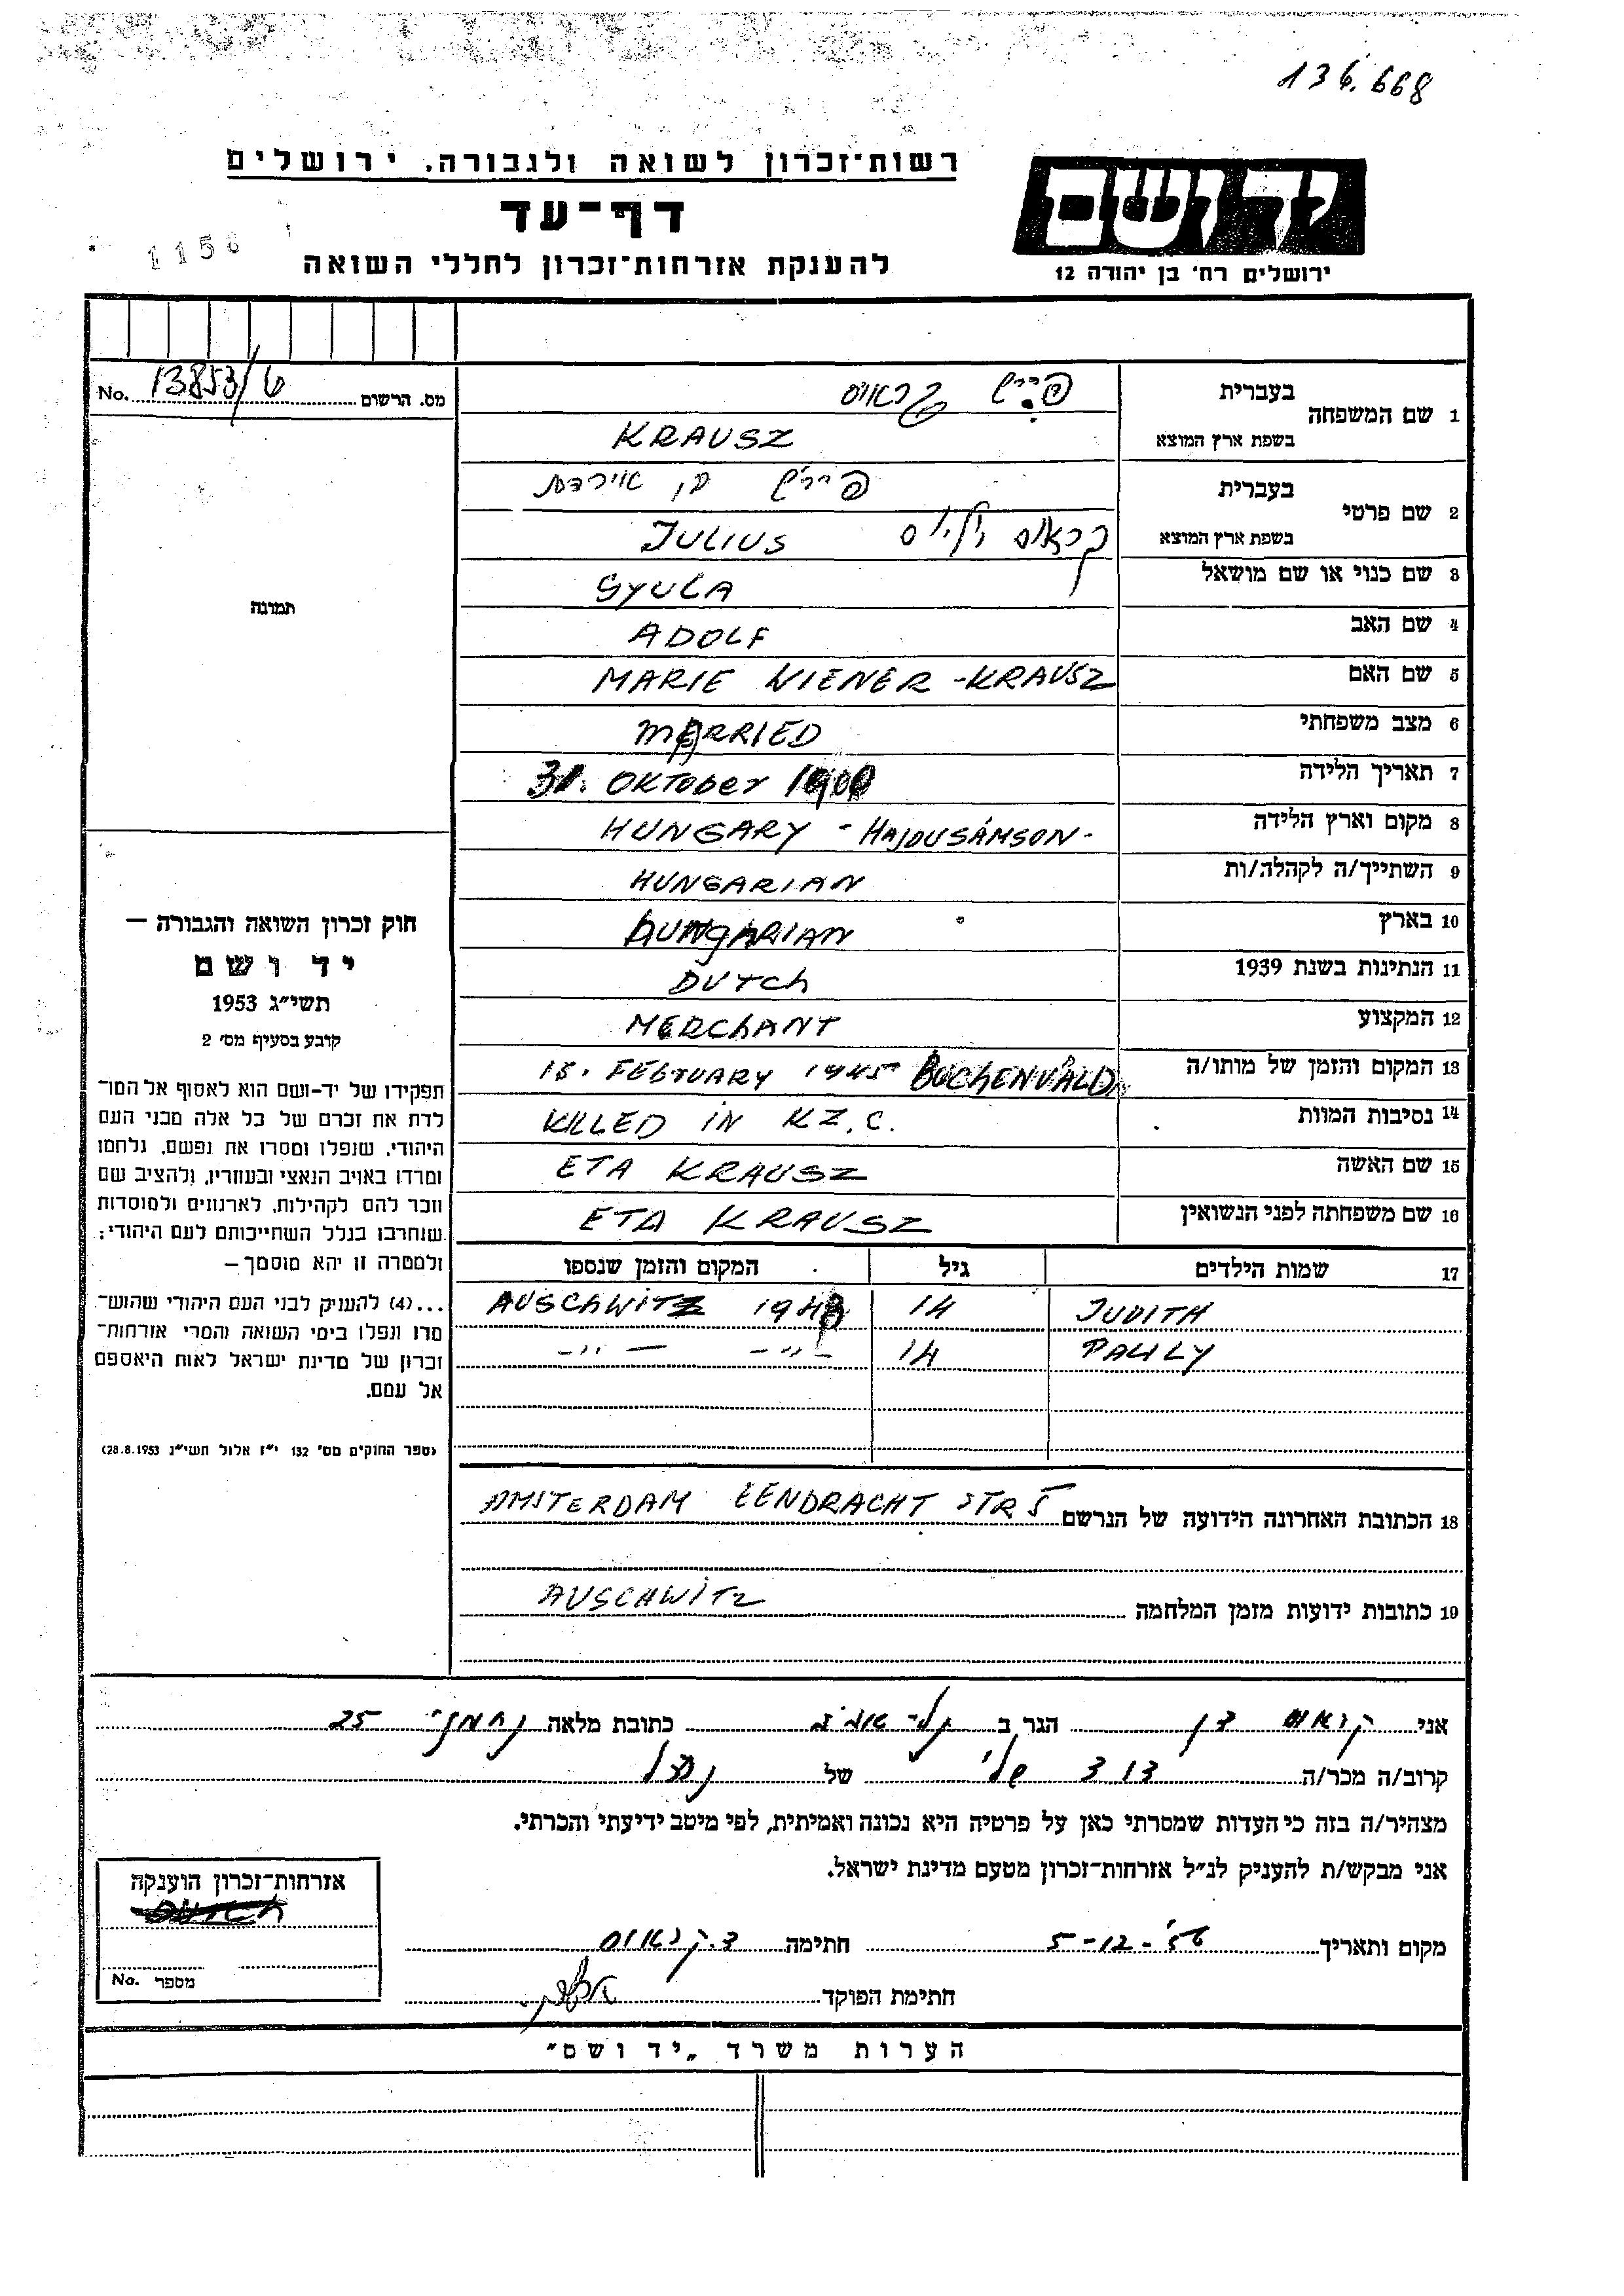 136.668
רשות־זכרון לשואה ולגבורה, ירושלים
יד ושם
דף־עד
1156
להענקת אזרחות־זכרון לחללי השואה
ירושלים רח' בן יהודה 12
1 שם המשפחה בעברית קראוס
בשפת ארץ המוצא KRAUSZ
מס. הרשום 13853/ No.
2 שם פרטי בעברית
בשפת ארץ המוצא קראוס יוליוס JULIUS
3 שם כנוי או שם מושאל GYULA
תמונה
4 שם האב ADOLF
5 שם האם MARIE WIENER-KRAUSZ
6 מצב משפחתי MARRIED
7 תאריך הלידה OKTOBER
8 מקום וארץ הלידה HUNGARY - HAJDUSÁMSON -
9 השתייך/ה לקהלה/ות HUNGARIAN
10 בארץ HUNGARIAN
11 הנתינות בשנת 1939 DUTCh
12 המקצוע MERChANT
13 המקום והזמן של מותו/ה FEBTUARY 1945 BUCHENVALD
14 נסיבות המוות KILLED iN KZ.C.
15 שם האשה ETA KRAUSZ
16 שם משפחתה לפני הנשואין ETA KRAUSZ
17 שמות הילדים גיל המקום והזמן שנספו
JUDITH 14 AUSCHWITZ
PAULY 14 -"- — -"-
חוק זכרון השואה והגבורה —
יד ושם
תשי"ג 1953
קובע בסעיף מס' 2
תפקידו של יד-ושם הוא לאסוף אל המו־
לדת את זכרם של כל אלה מבני העם
היהודי, שנפלו ומסרו את נפשם, נלחמו
ומרדו באויב הנאצי ובעוזריו, ולהציב שם
וזכר להם לקהילות, לארגונים ולמוסדות
שנחרבו בגלל השתייכותם לעם היהודי;
ולמטרה זו יהא מוסמך —
...(4) להעניק לבני העם היהודי שהוש־
מדו ונפלו בימי השואה והמרי אזרחות־
זכרון של מדינת ישראל לאות היאספם
אל עמם.
(ספר החוקים מס' 132 י"ז אלול תשי"ג 28.8.1953)
18 הכתובת האחרונה הידועה של הנרשם AMSTERDAM EENDRACHT STR 5
19 כתובות ידועות מזמן המלחמה AUSCHWITZ
אני קראוס דן הגר ב כתובת מלאה נחמני 25
קרוב/ה מכר/ה דוד שלי של
מצהיר/ה בזה כי העדות שמסרתי כאן על פרטיה היא נכונה ואמיתית, לפי מיטב ידיעתי והכרתי.
אני מבקש/ת להעניק לנ"ל אזרחות־זכרון מטעם מדינת ישראל.
מקום ותאריך 5-12- חתימה ד. קראוס
חתימת הפוקד
אזרחות־זכרון הוענקה
מספר No.
הערות משרד „יד ושם"